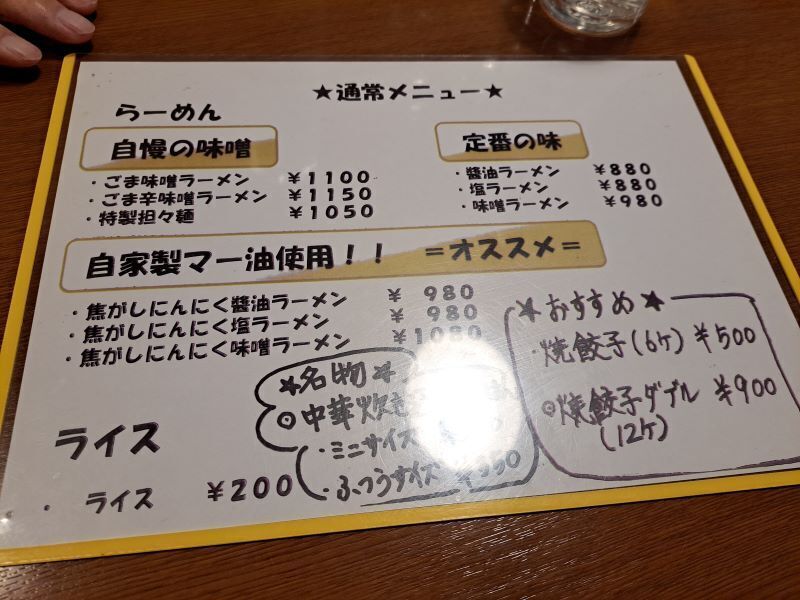 ★通常メニュー★
らーめん
自慢の味噌
・ごま味噌ラーメン ￥1100
・ごま辛味噌ラーメン ￥1150
・特製担々麺 ￥1050
定番の味
・醬油ラーメン ￥880
・塩ラーメン ￥880
・味噌ラーメン ￥980
自家製マー油使用！！ ＝オススメ＝
・焦がしにんにく醬油ラーメン ￥ 980
・焦がしにんにく塩ラーメン ￥ 980
・焦がしにんにく味噌ラーメン ￥1080
★おすすめ★
・焼餃子(6ケ) ￥500
◎焼餃子ダブル ￥900
(12ケ)
★名物★
◎中華炊き
・ミニサイズ
・ふつうサイズ
ライス
・ ライス ￥200